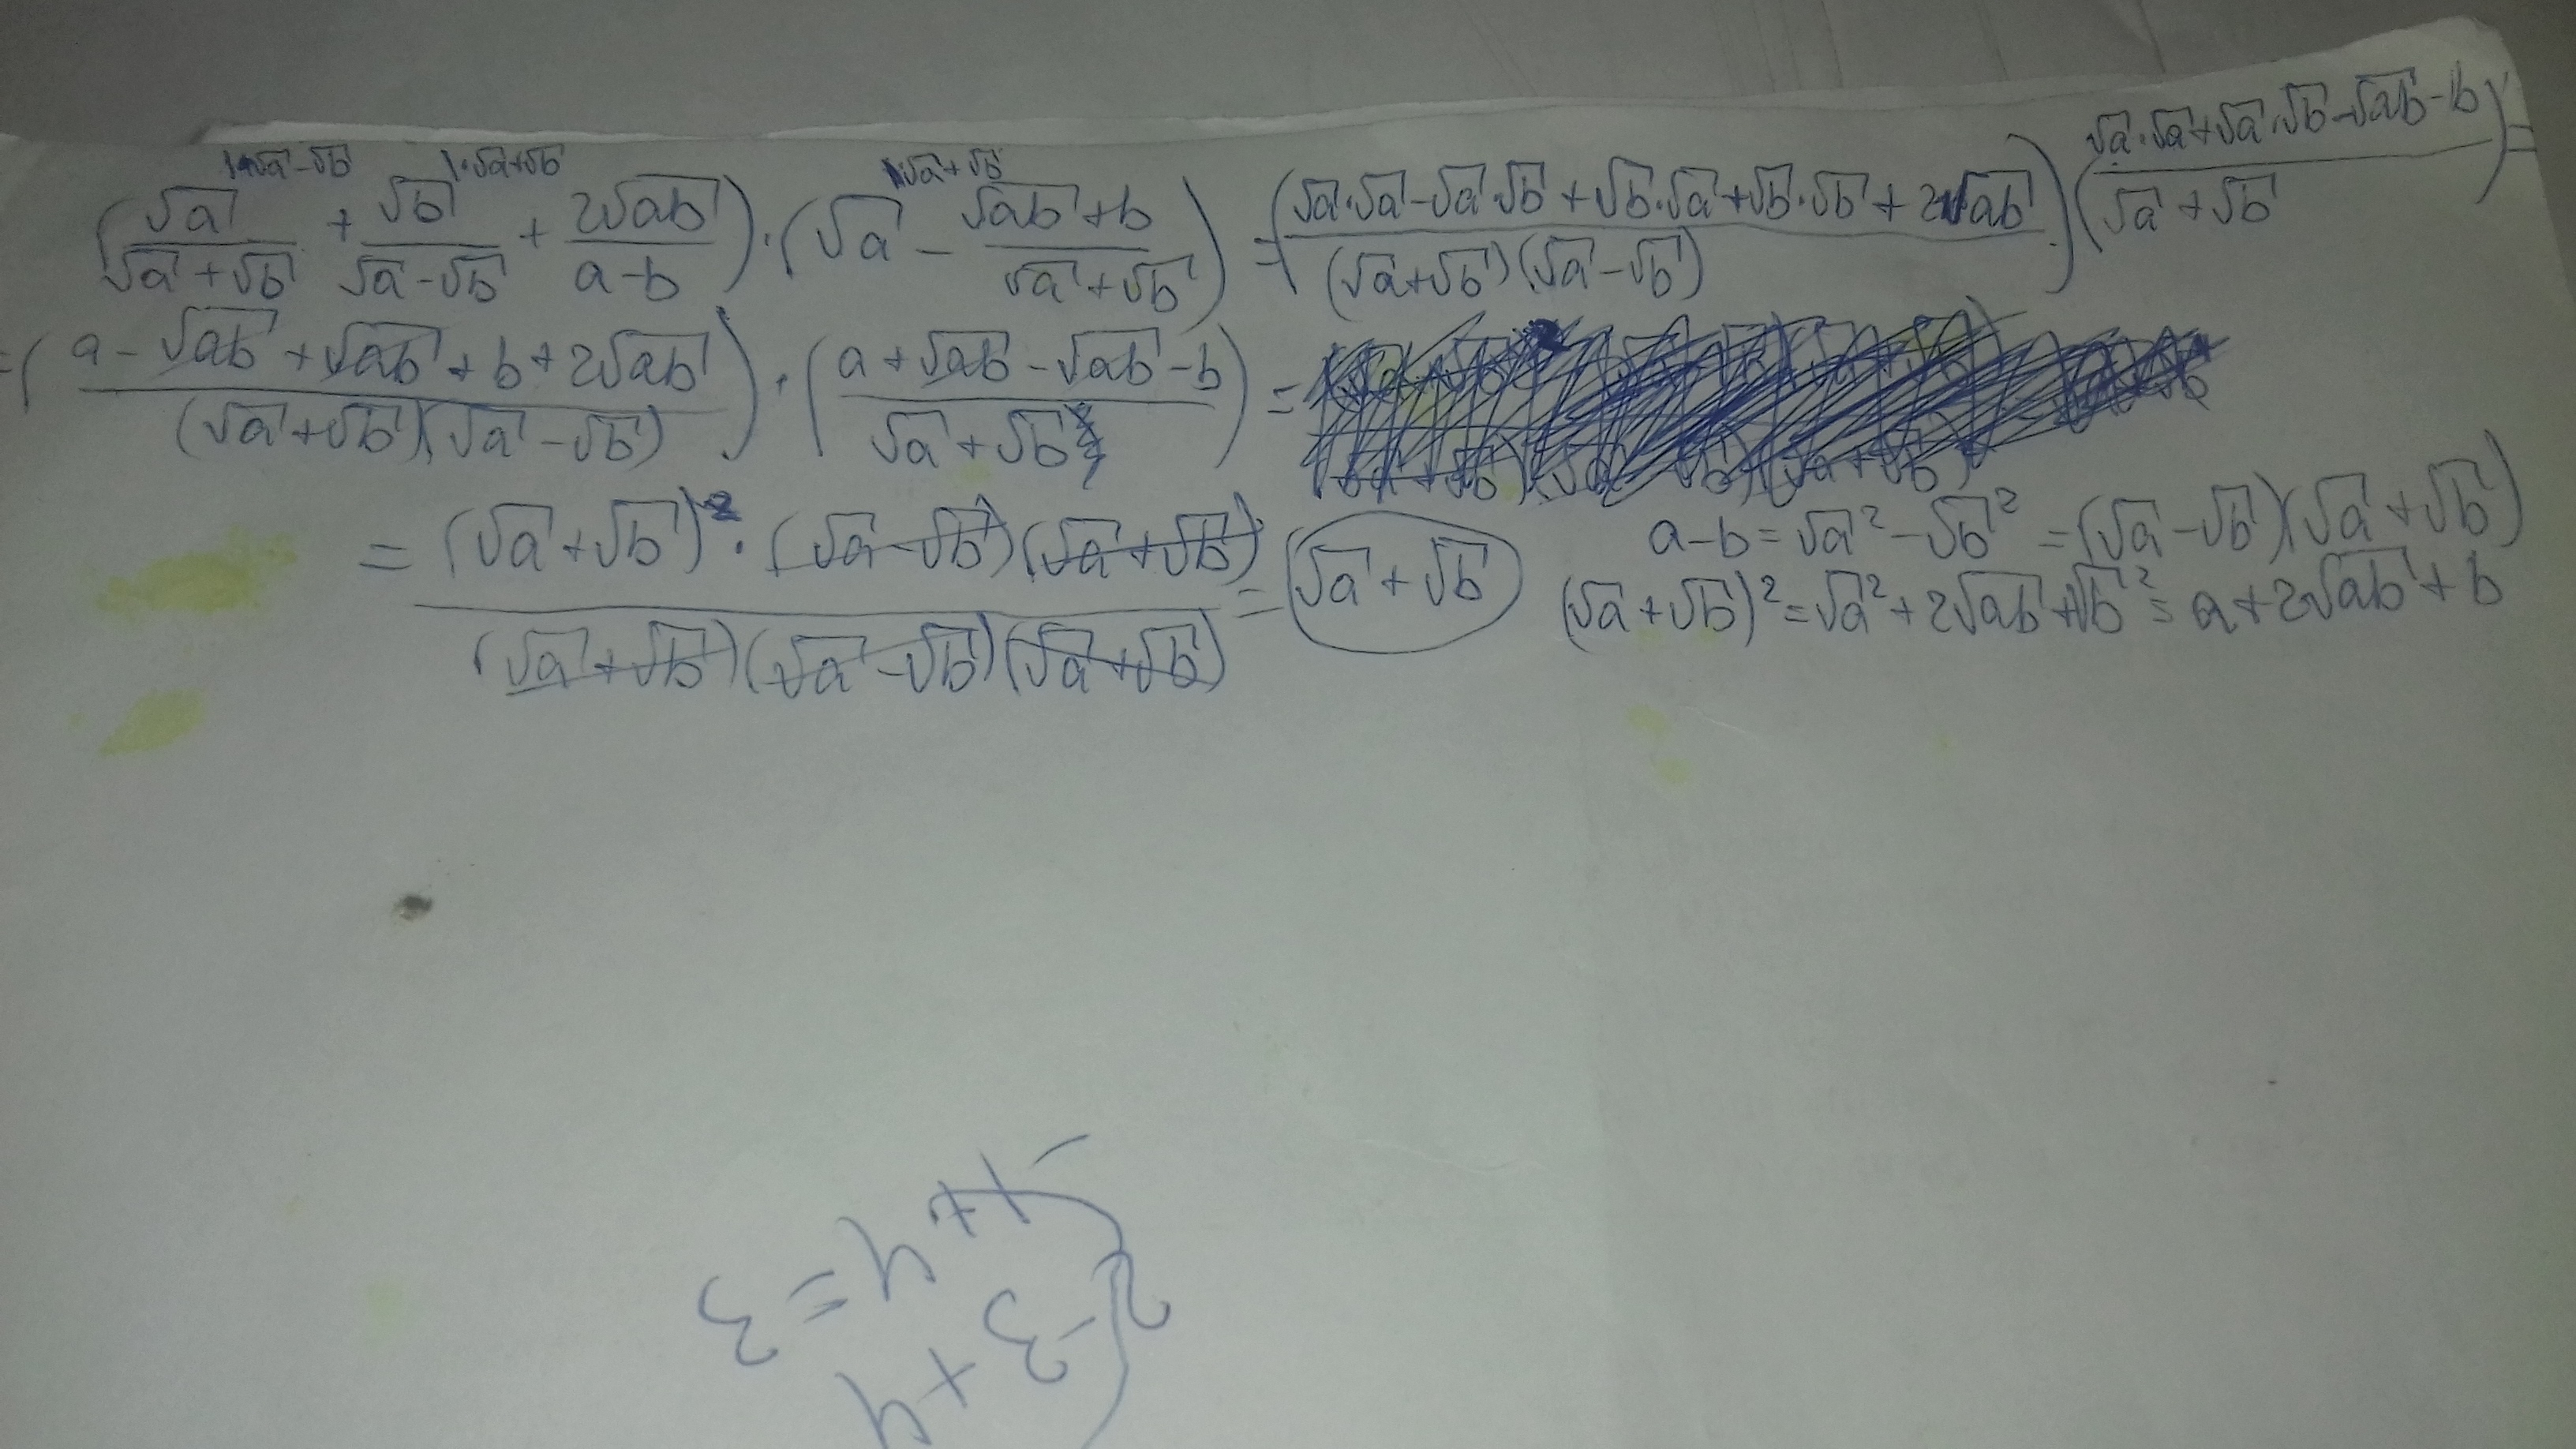 1·√a-√b 1·√a+√b 1·√a+√b
(√a/(√a+√b) + √b/(√a-√b) + 2√ab/(a-b)) · (√a - (√ab+b)/(√a+√b)) = ((√a·√a-√a·√b+√b·√a+√b·√b+2√ab)/((√a+√b)(√a-√b))) · ((√a·√a+√a·√b-√ab-b)/(√a+√b)) =
= ((a-√ab+√ab+b+2√ab)/((√a+√b)(√a-√b))) · ((a+√ab-√ab-b)/(√a+√b)) =
= ((√a+√b)² · (√a-√b)(√a+√b))/((√a+√b)(√a-√b)(√a+√b)) = √a+√b
a-b=√a²-√b²=(√a-√b)(√a+√b)
(√a+√b)²=√a²+2√ab+√b²=a+2√ab+b
2-3+4
-1+4=3